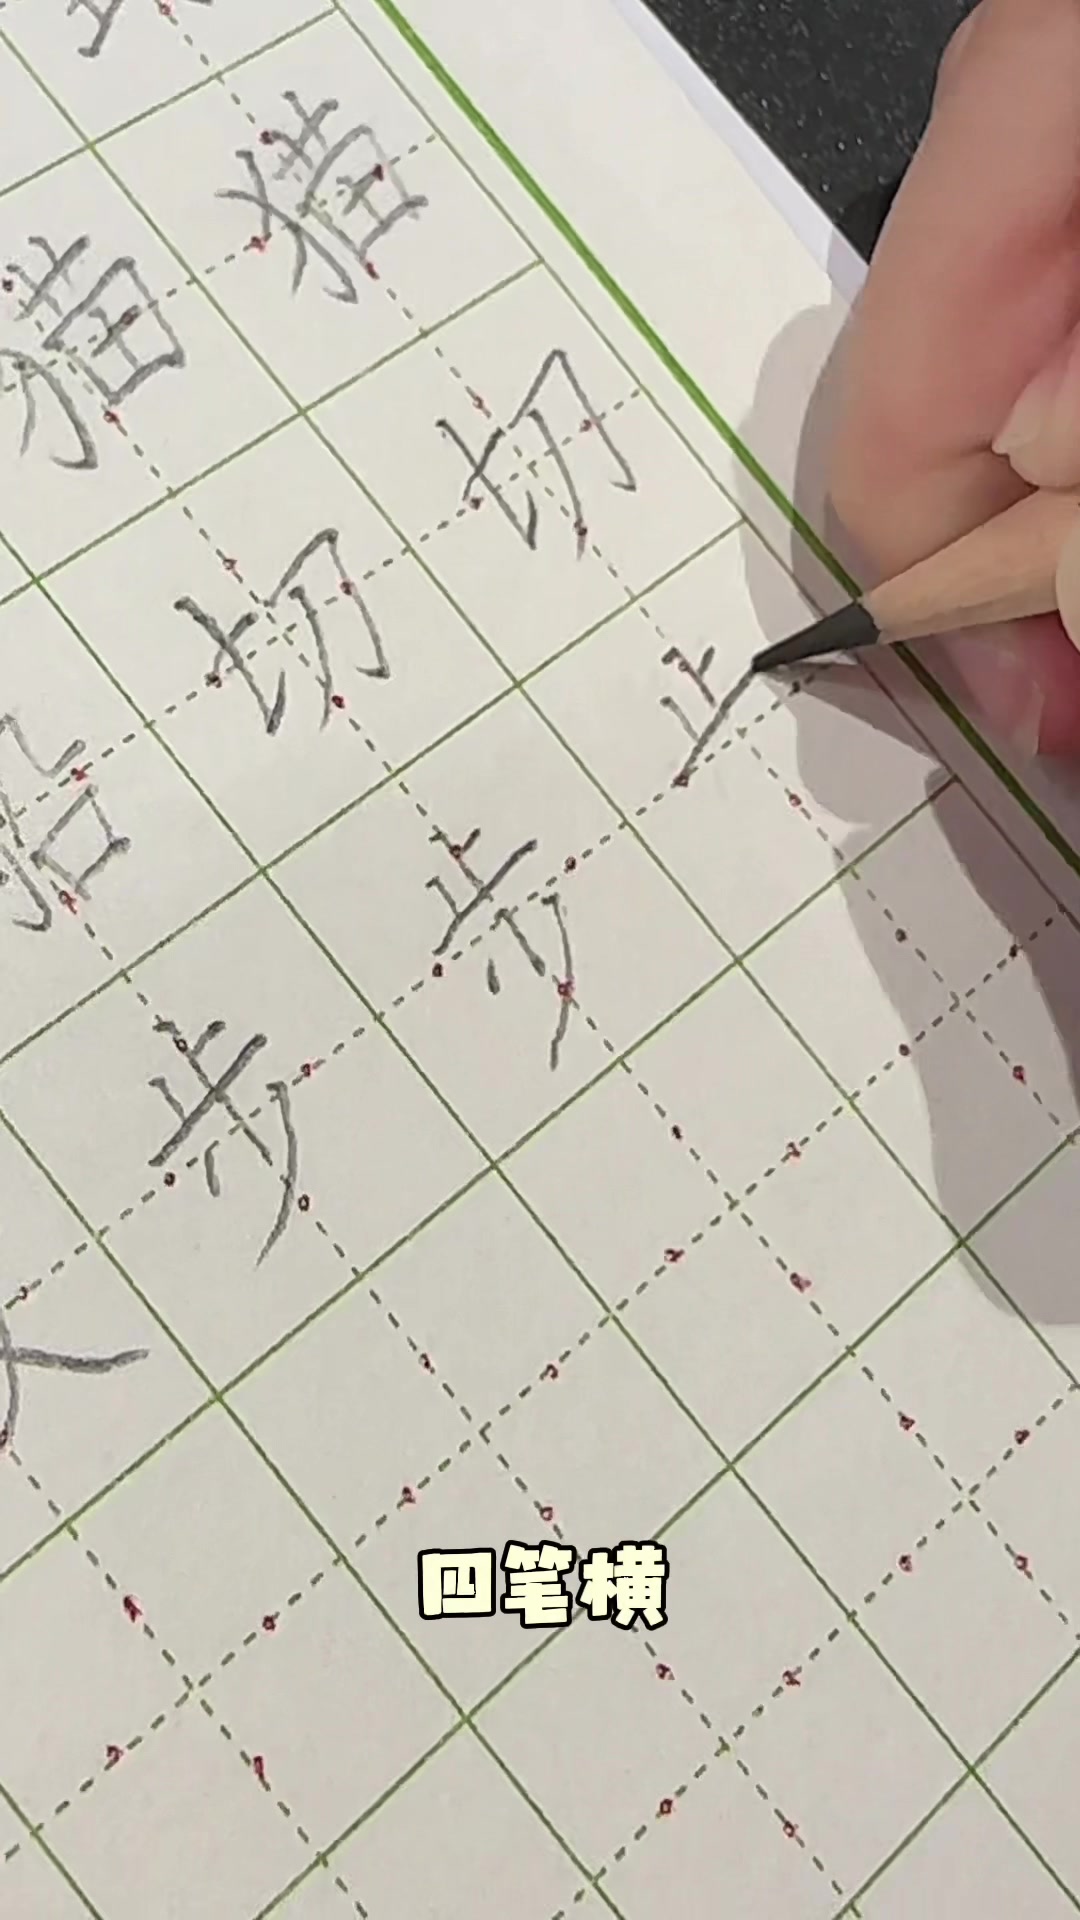 猫 猫
切 切
步 步 止
四笔横